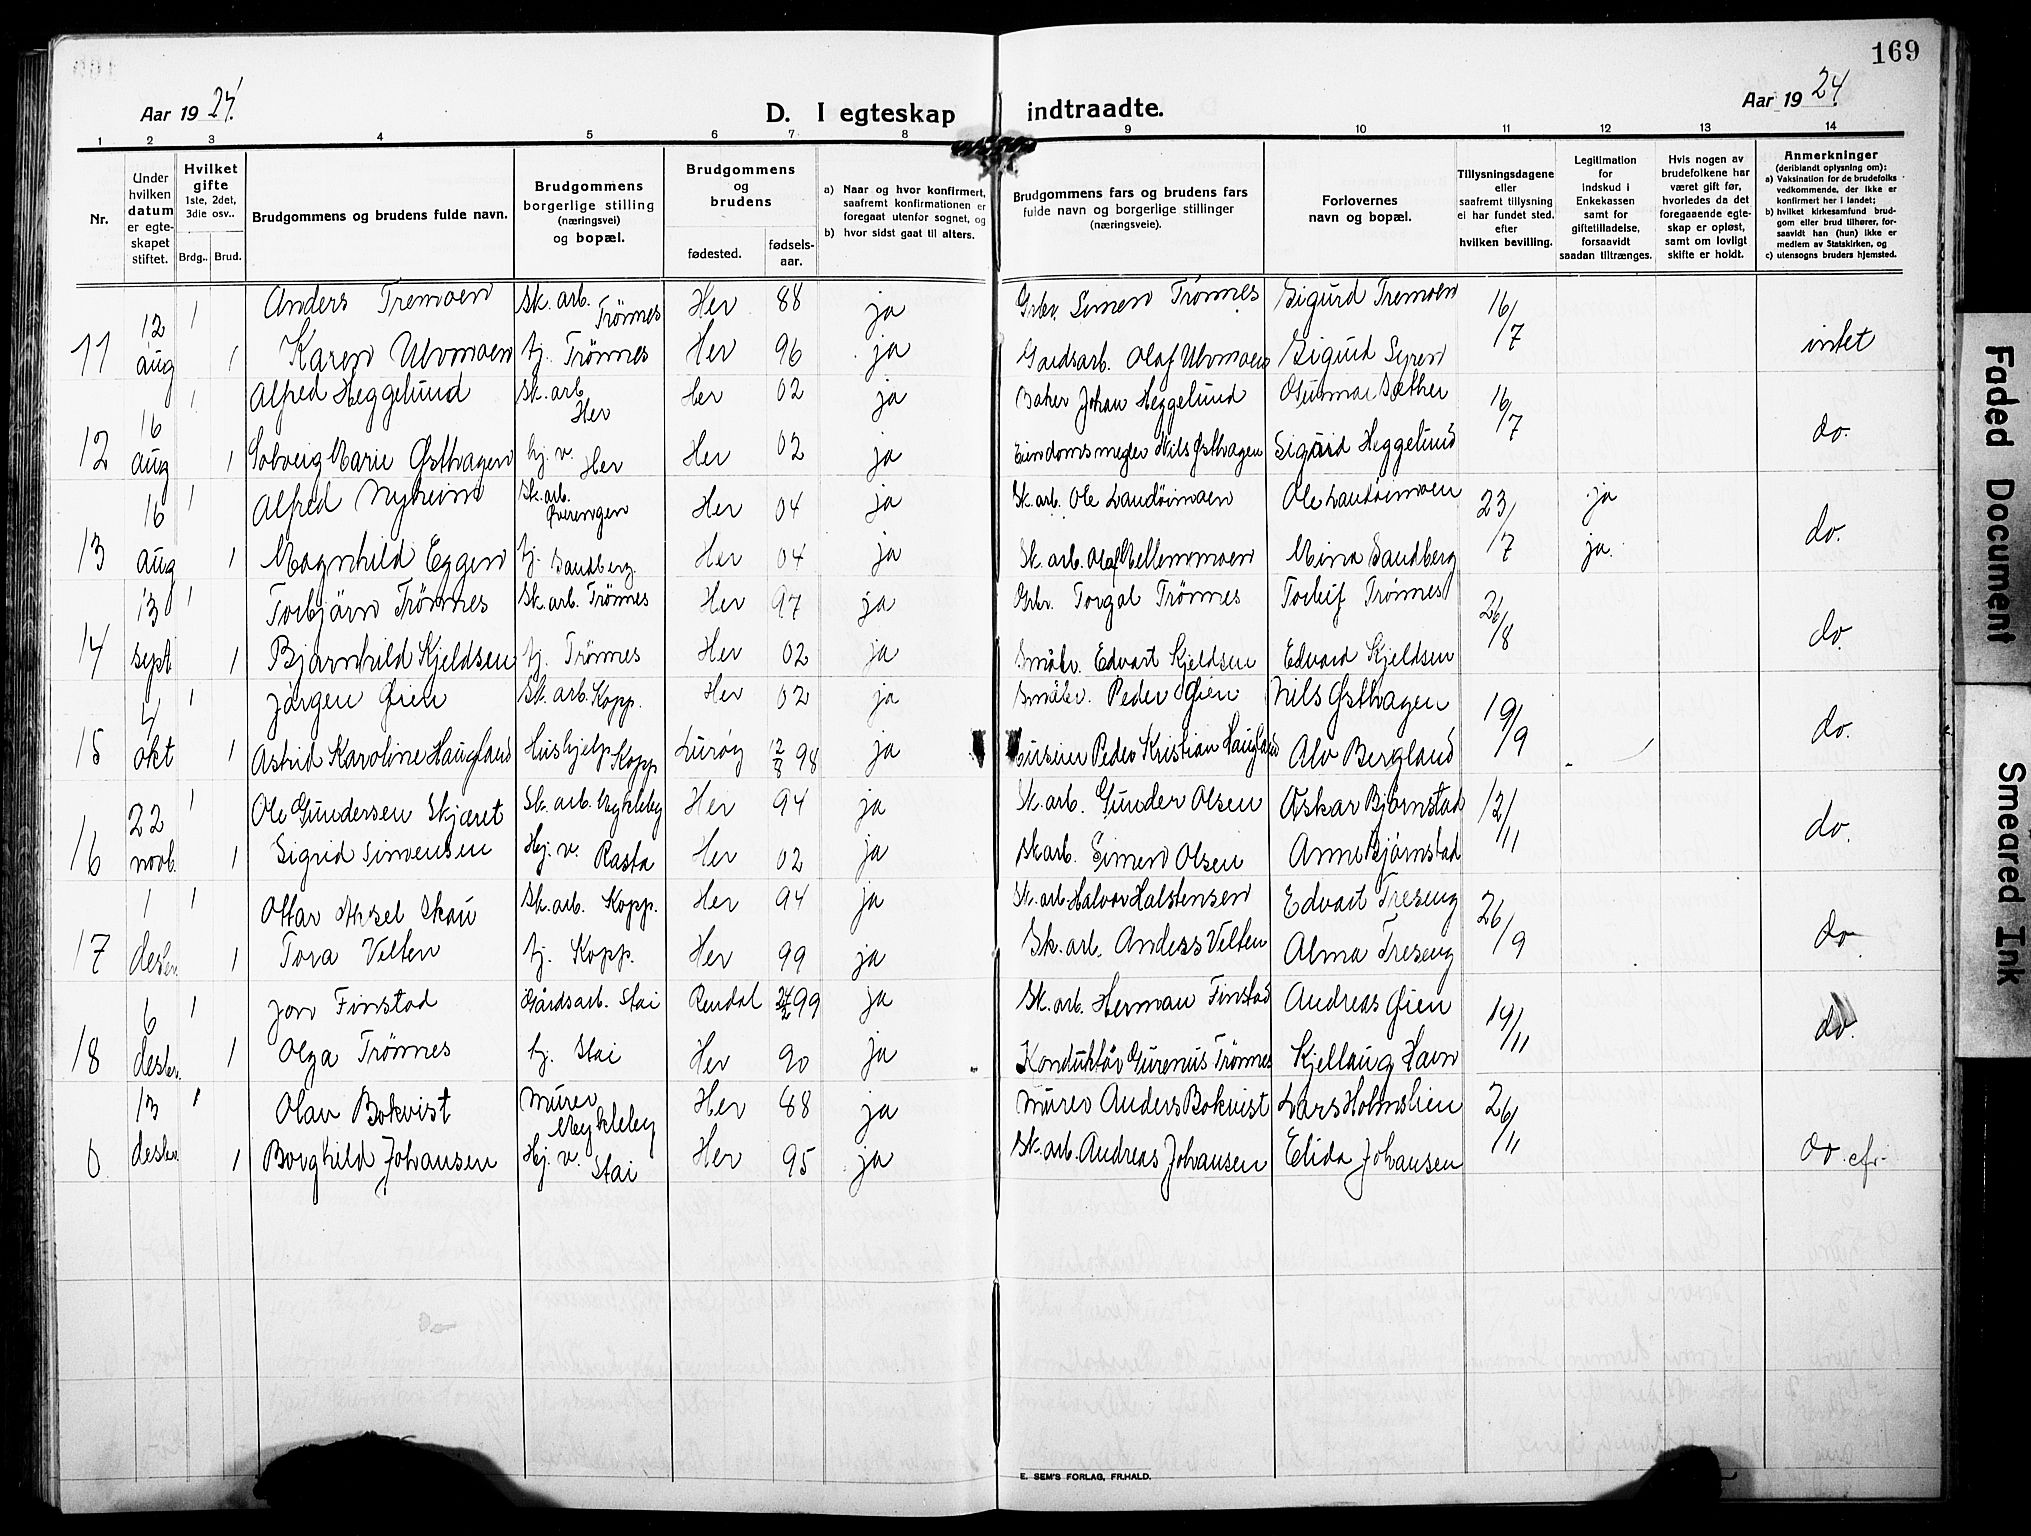 169
Aar 1924.
D. I egteskap indtraadte.
Aar 1924.
1 2 3 4 5 6 7 8 9 10 11 12 13 14
Nr.
Under hvilken datum er egteskapet stiftet.
Hvilket gifte 1ste, 2det, 3die osv..
Brdg.. Brud.
Brudgommens og brudens fulde navn.
Brudgommens borgerlige stilling (næringsvei) og bopæl.
Brudgommens og brudens
fødested. fødselsaar.
a) Naar og hvor konfirmert, saafremt konfirmationen er foregaat utenfor sognet, og
b) hvor sidst gaat til alters.
Brudgommens fars og brudens fars fulde navn og borgerlige stillinger (næringsveie).
Forlovernes navn og bopæl.
Tillysningsdagene eller saafremt tillysning ei har fundet sted. efter hvilken bevilling.
Legitimation for Indskud i Enkekassen samt for giftetilladelse, forsaavidt saadan tiltrænges.
Hvis nogen av brudefolkene har været gift før, hvorledes da det foregaaende egteskap er opløst, samt om lovligt skifte er holdt.
Anmerkninger (deriblandt oplysning om):
a) Vaksination for de brudefolks vedkommende, der ikke er konfirmert her i landet;
b) hvilket kirkesamfund brudgom eller brud tilhører, forsaavidt han (hun) ikke er medlem av Statskirken, og
c) utensogns bruders hjemsted.
11 12 aug 1 Anders Tremoen Sk. arb. Trönnes Her 88 ja Grbr. Simen Trönnes Sigurd Tremoen 16/7 intet
1 Karen Ulvmoen hj. Trönnes Her 96 ja Gaardsarb. Olaf Ulvmoen Sigurd Syren
12 16 aug 1 Alfred Heggelund Sk. arb Her Her 02 ja Baker Johan Heggelund Gunnar Sæther 16/7 do.
1 Solveig Marie Østhagen hj. v. Her Her 02 ja Eiendomsmegler Nils Østhagen Sigurd Heggelund
13 16 aug 1 Alfred Nyheim Sk. arb. Øverengen Her 04 ja Sk. arb. Ole Landöimoen Ole Landöimoen 23/7 ja do.
1 Magnhild Eggen hj. Sandberg Her 04 ja Sk. arb. Olaf Mellemmoen Mina Sandberg ja
14 13 sept 1 Torbjörn Trönnes Sk. arb. Trönnes Her 97 ja Grbr. Torgal Trönnes Torleif Trönnes 26/8 do.
1 Bjarnhild Kjeldsen hj. Trönnes Her 02 ja Småbr. Edvart Kjeldsen Edvard Kjeldsen
15 4 okt 1 Jörgen Øien Sk. arb. Kopp. Her 02 ja Småbr. Peder Øien Nils Østhagen 19/9 do.
1 Astrid Karoline Haugland Hushjelp Kopp Luröy 12/8 98 ja Peder Kristian Haugland Alv Bergland
16 22 novb. 1 Ole Gundersen Skjæret Sk. arb. Mykleby Her 94 ja Sk. arb. Gunder Olsen Oskar Bjørnstad 12/11 do.
1 Sigrid Simensen Hj. v. Rasta Her 02 ja Sk arb. Simen Olsen Anne Bjørnstad
17 1 desbr. 1 Ottar Aksel Skau Sk. arb. Kopp. Her 94 ja Sk. arb. Halvor Halstensen Edvart Treseng 26/9 do
1 Tora Velten hj. Kopp. Her 99 ja Sk. arb. Anders Velten Alma Treseng
18 6 desbr. 1 Jon Finstad Gårdsarb. Stai Rendal 24/2 99 ja Sk. arb. Herman Finstad Andreas Øien 19/11 do.
1 Olga Trönnes hj. Stai Her 90 ja Konduktör Gurenius Trönnes Kjellaug Havn
0 13 desbr. 1 Olav Bokvist Murer Mykleby Her 88 ja Murer Anders Bokvist Lars Holmslien 26/11 do. cfr.
1 Borghild Johansen Hj. v. Stai Her 95 ja Sk. arb. Andreas Johansen Elida Johansen
E. SEM'S FORLAG, FR.HALD.
Faded Document
Smeared Ink